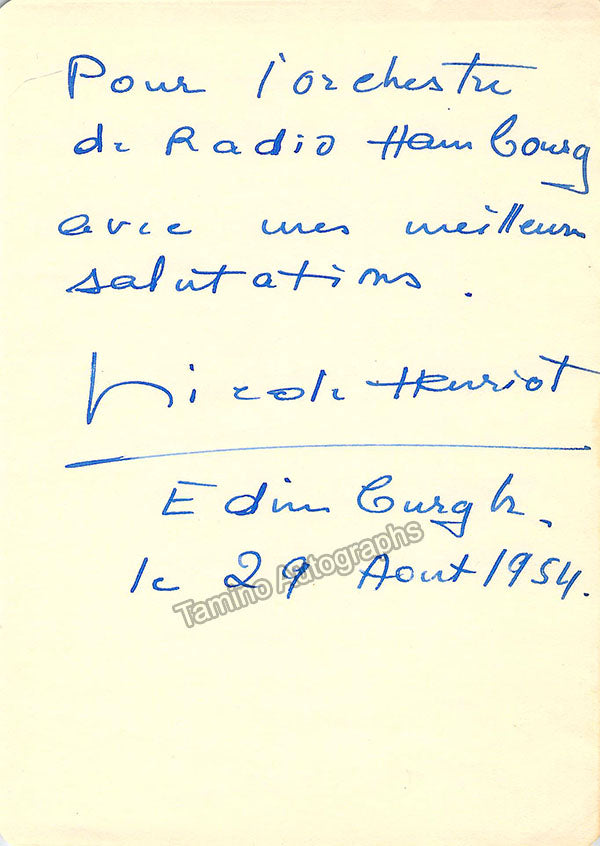 Pour l'orchestre
de Radio Hambourg
avec mes meilleurs
salutations.
Nicole Henriot
Edimburgh.
le 29 Aout 1954.
Tamino Autographs